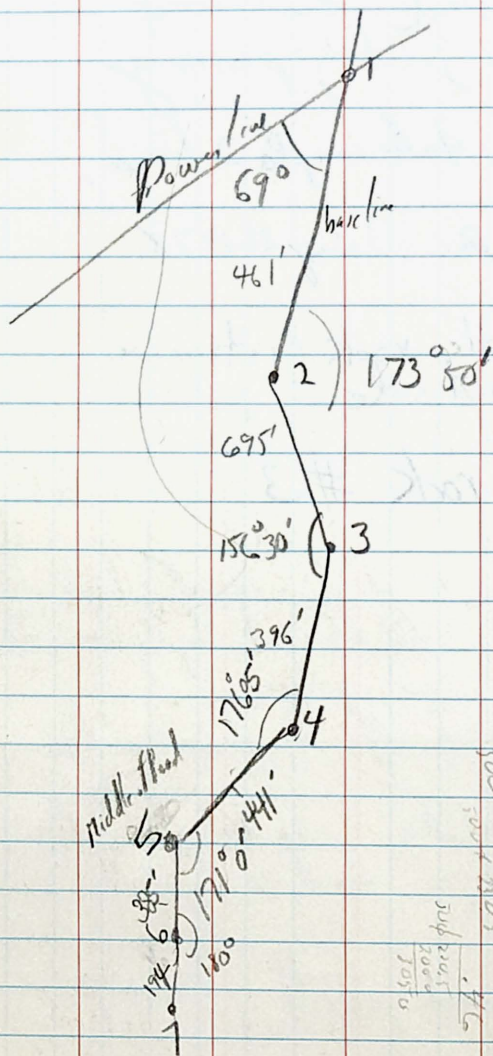 1
Powerline
69°
baseline
461'
2
173° 50'
695'
156° 30'
3
396'
176° 05'
4
441'
5
171° 0'
6
180°
194